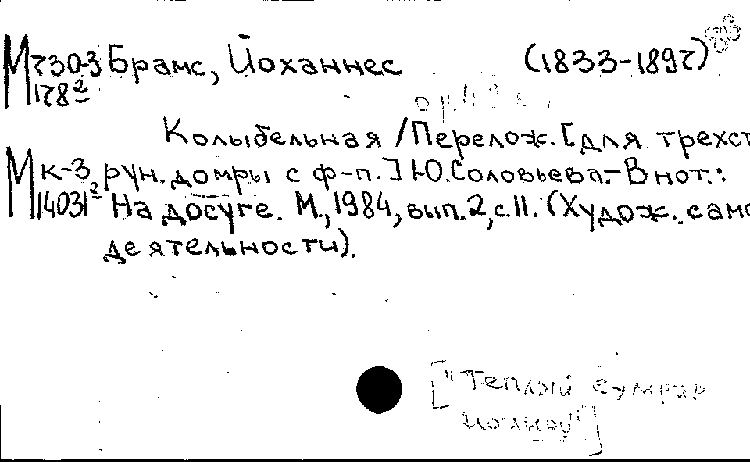 М 730-3 Брамс, Йоханнес (1833-1897)
178²
ор. 49
Колыбельная /Перелож. [для трехст
М к-3 рун. домры с ф-п.] Ю. Соловьева.- В нот.:
14031² На досуге. М., 1984, вып. 2, с. 11. (Худож. само
деятельности).
["Теплый сумрар